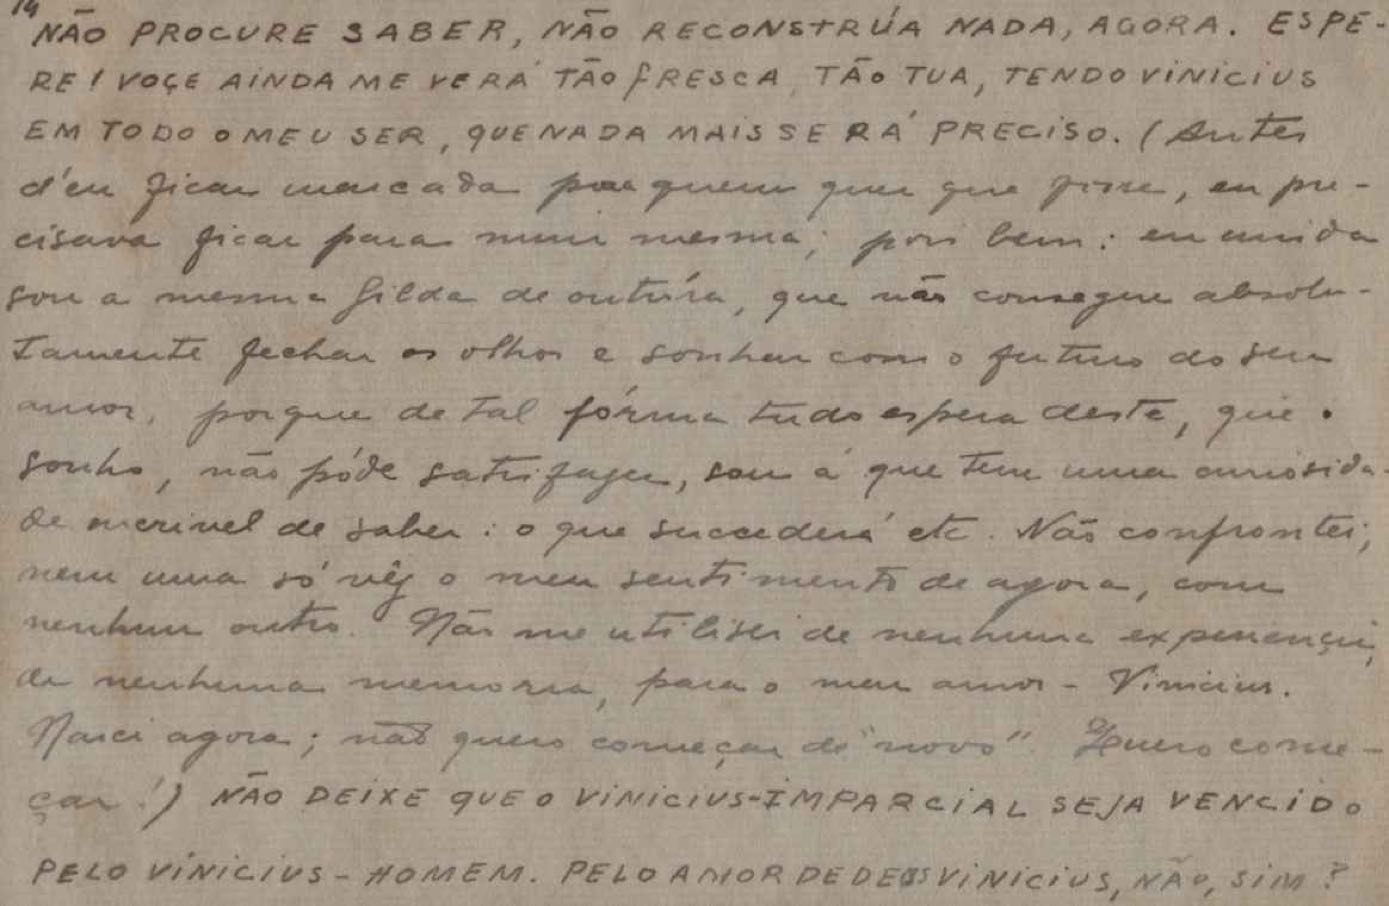 14
NÃO PROCURE SABER, NÃO RECONSTRÚA NADA, AGORA. ESPE-
RE! VOÇE AINDA ME VERÁ TÃO FRESCA, TÃO TUA, TENDO VINICIUS
EM TODO O MEU SER, QUE NADA MAIS SERÁ PRECISO. (Antes
d'eu ficar marcada por quem quer que fosse, eu pre-
cisava ficar para mim mesma; pois bem: eu ainda
sou a mesma Gilda de outróra, que não consegue absolu-
tamente fechar os olhos e sonhar com o futuro do seu
amor, porque de tal fórma tudo espera deste, que o
sonho, não póde satisfazer, sou a que tem uma curiosida-
de incrivel de saber: o que succederá etc. Não confrontei,
nem uma só vêz o meu sentimento de agora, com
nenhum outro. Não me utilisei de nenhuma experiencia,
de nenhuma memoria, para o meu amor - Vinicius.
Nasci agora; não quero começar de "novo". Quero come-
çar!) NÃO DEIXE QUE O VINICIUS-IMPARCIAL SEJA VENCIDO
PELO VINICIUS - HOMEM. PELO AMOR DE DEUS VINICIUS, NÃO, SIM?